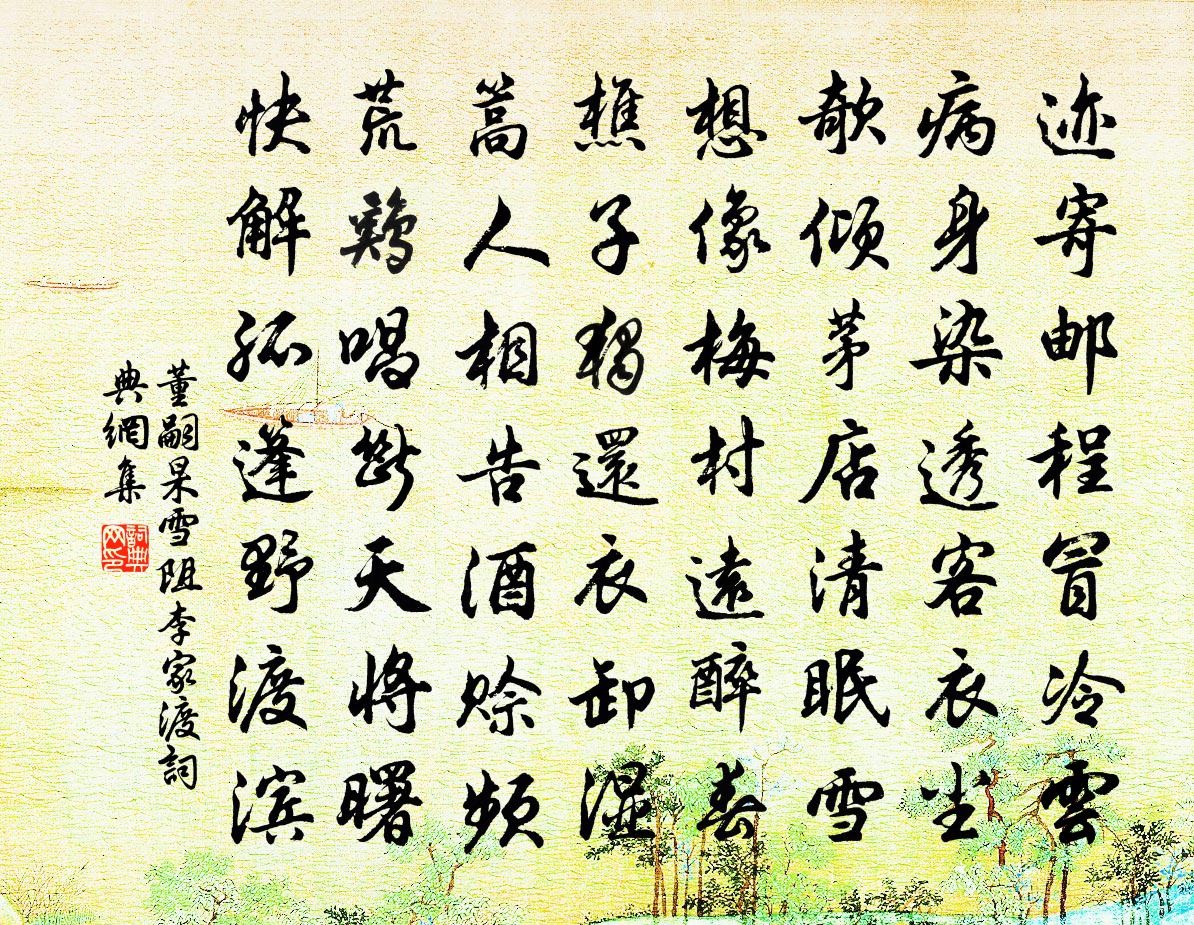 迹寄邮程冒冷雲
病身染透客衣尘
欹倾茅店清眠雪
想像梅村遠醉春
樵子独還衣卸湿
蒿人相告酒赊频
荒鷄唱断天将曙
快解孤蓬野渡滨
董嗣杲雪阻李家渡詞
典網集
詞典网印